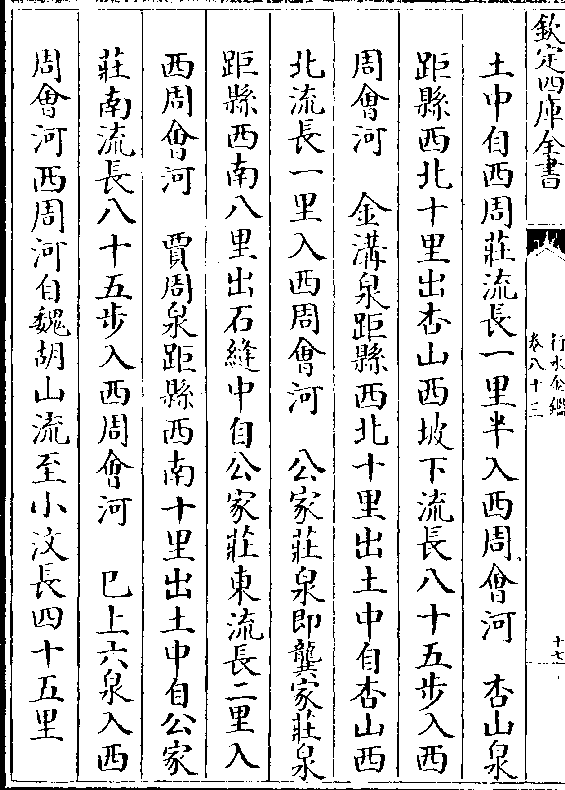 欽定四庫全書
行水金鑑
卷八十三
十七
土中自西周莊流長一里半入西周會河　杏山泉
距縣西北十里出杏山西坡下流長八十五步入西
周會河　金溝泉距縣西北十里出土中自杏山西
北流長一里入西周會河　公家莊泉即龔家莊泉
距縣西南八里出石縫中自公家莊東流長二里入
西周會河　賈周泉距縣西南十里出土中自公家
莊南流長八十五步入西周會河　已上六泉入西
周會河西周河自魏胡山流至小汶長四十五里